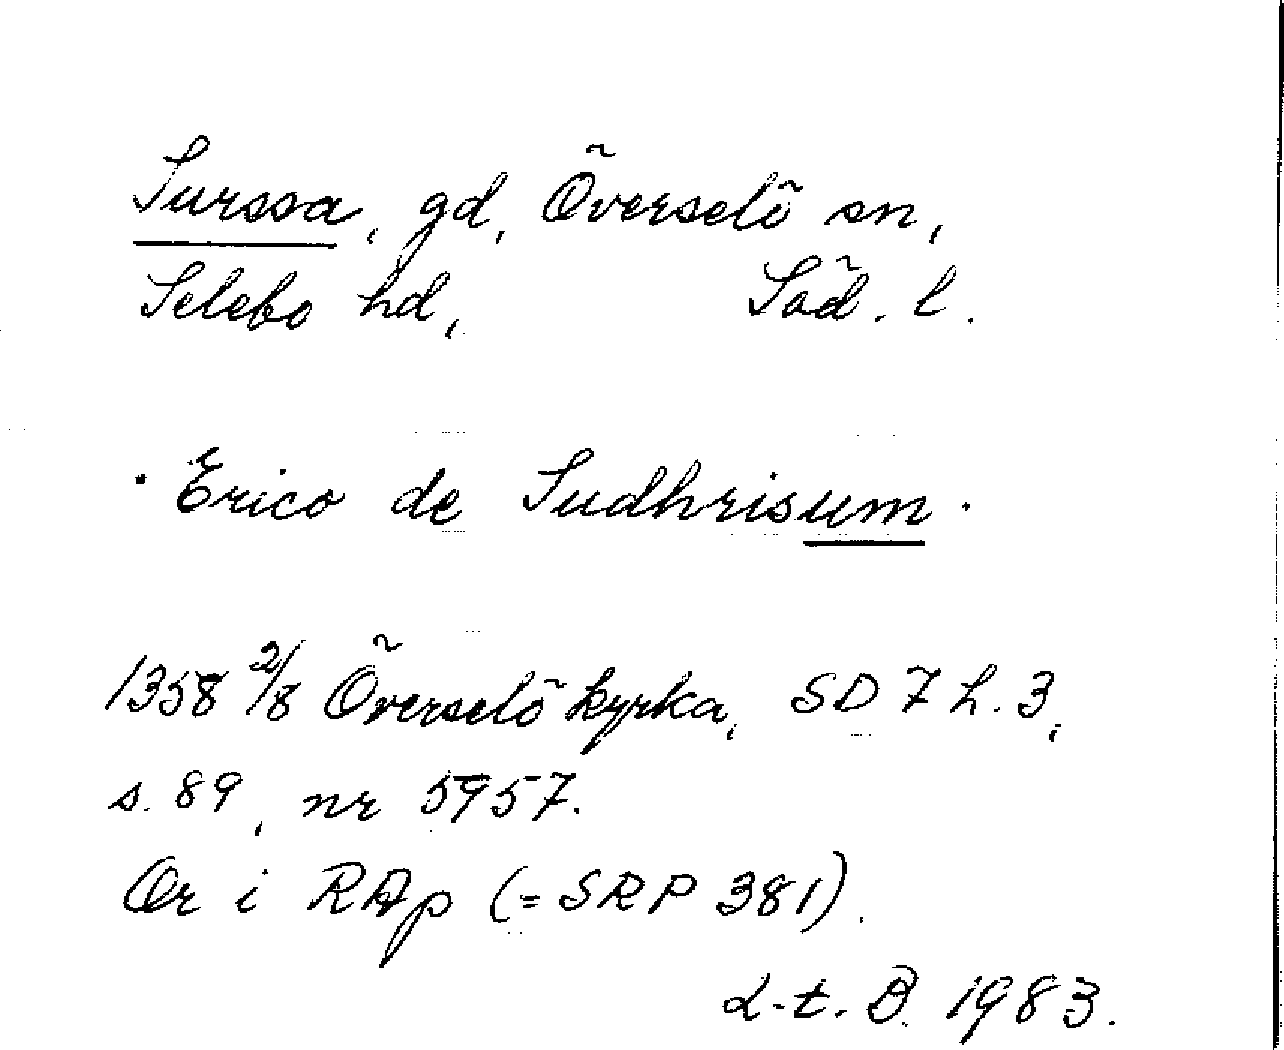 Surssa, gd, Överselö sn,
Selebo hd, Söd. l.
· Erico de Sudhrisum ·
1358 2/8 Överselö kyrka, SD 7 h. 3,
s. 89, nr 5957.
Or i RAp (= SRP 381).
L-t. B. 1983.